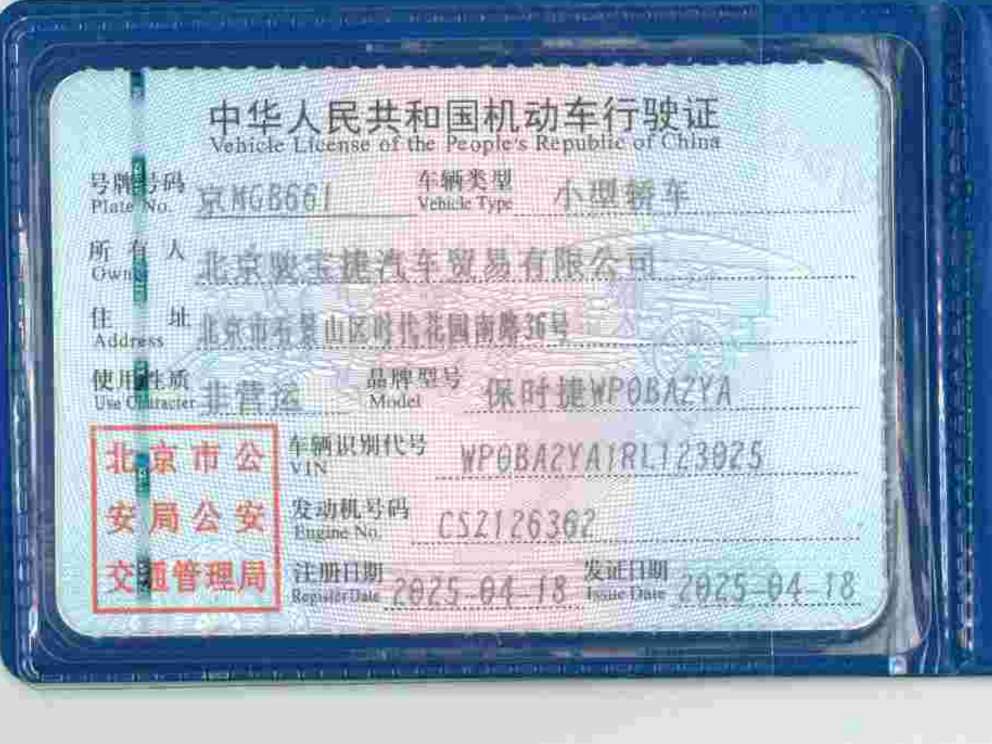 中华人民共和国机动车行驶证
Vehicle License of the People's Republic of China
号牌号码 京MGB661 车辆类型 小型轿车
Plate No. Vehicle Type
所有人 北京骏宝捷汽车贸易有限公司
Owner
住址 北京市石景山区时代花园南路36号
Address
使用性质 非营运 品牌型号 保时捷WP0BA2YA
Use Character Model
北京市公
安局公安
交通管理局
车辆识别代号 WP0BA2YA1RL123025
VIN
发动机号码 CSZ126362
Engine No.
注册日期 2025-04-18 发证日期 2025-04-18
Register Date Issue Date